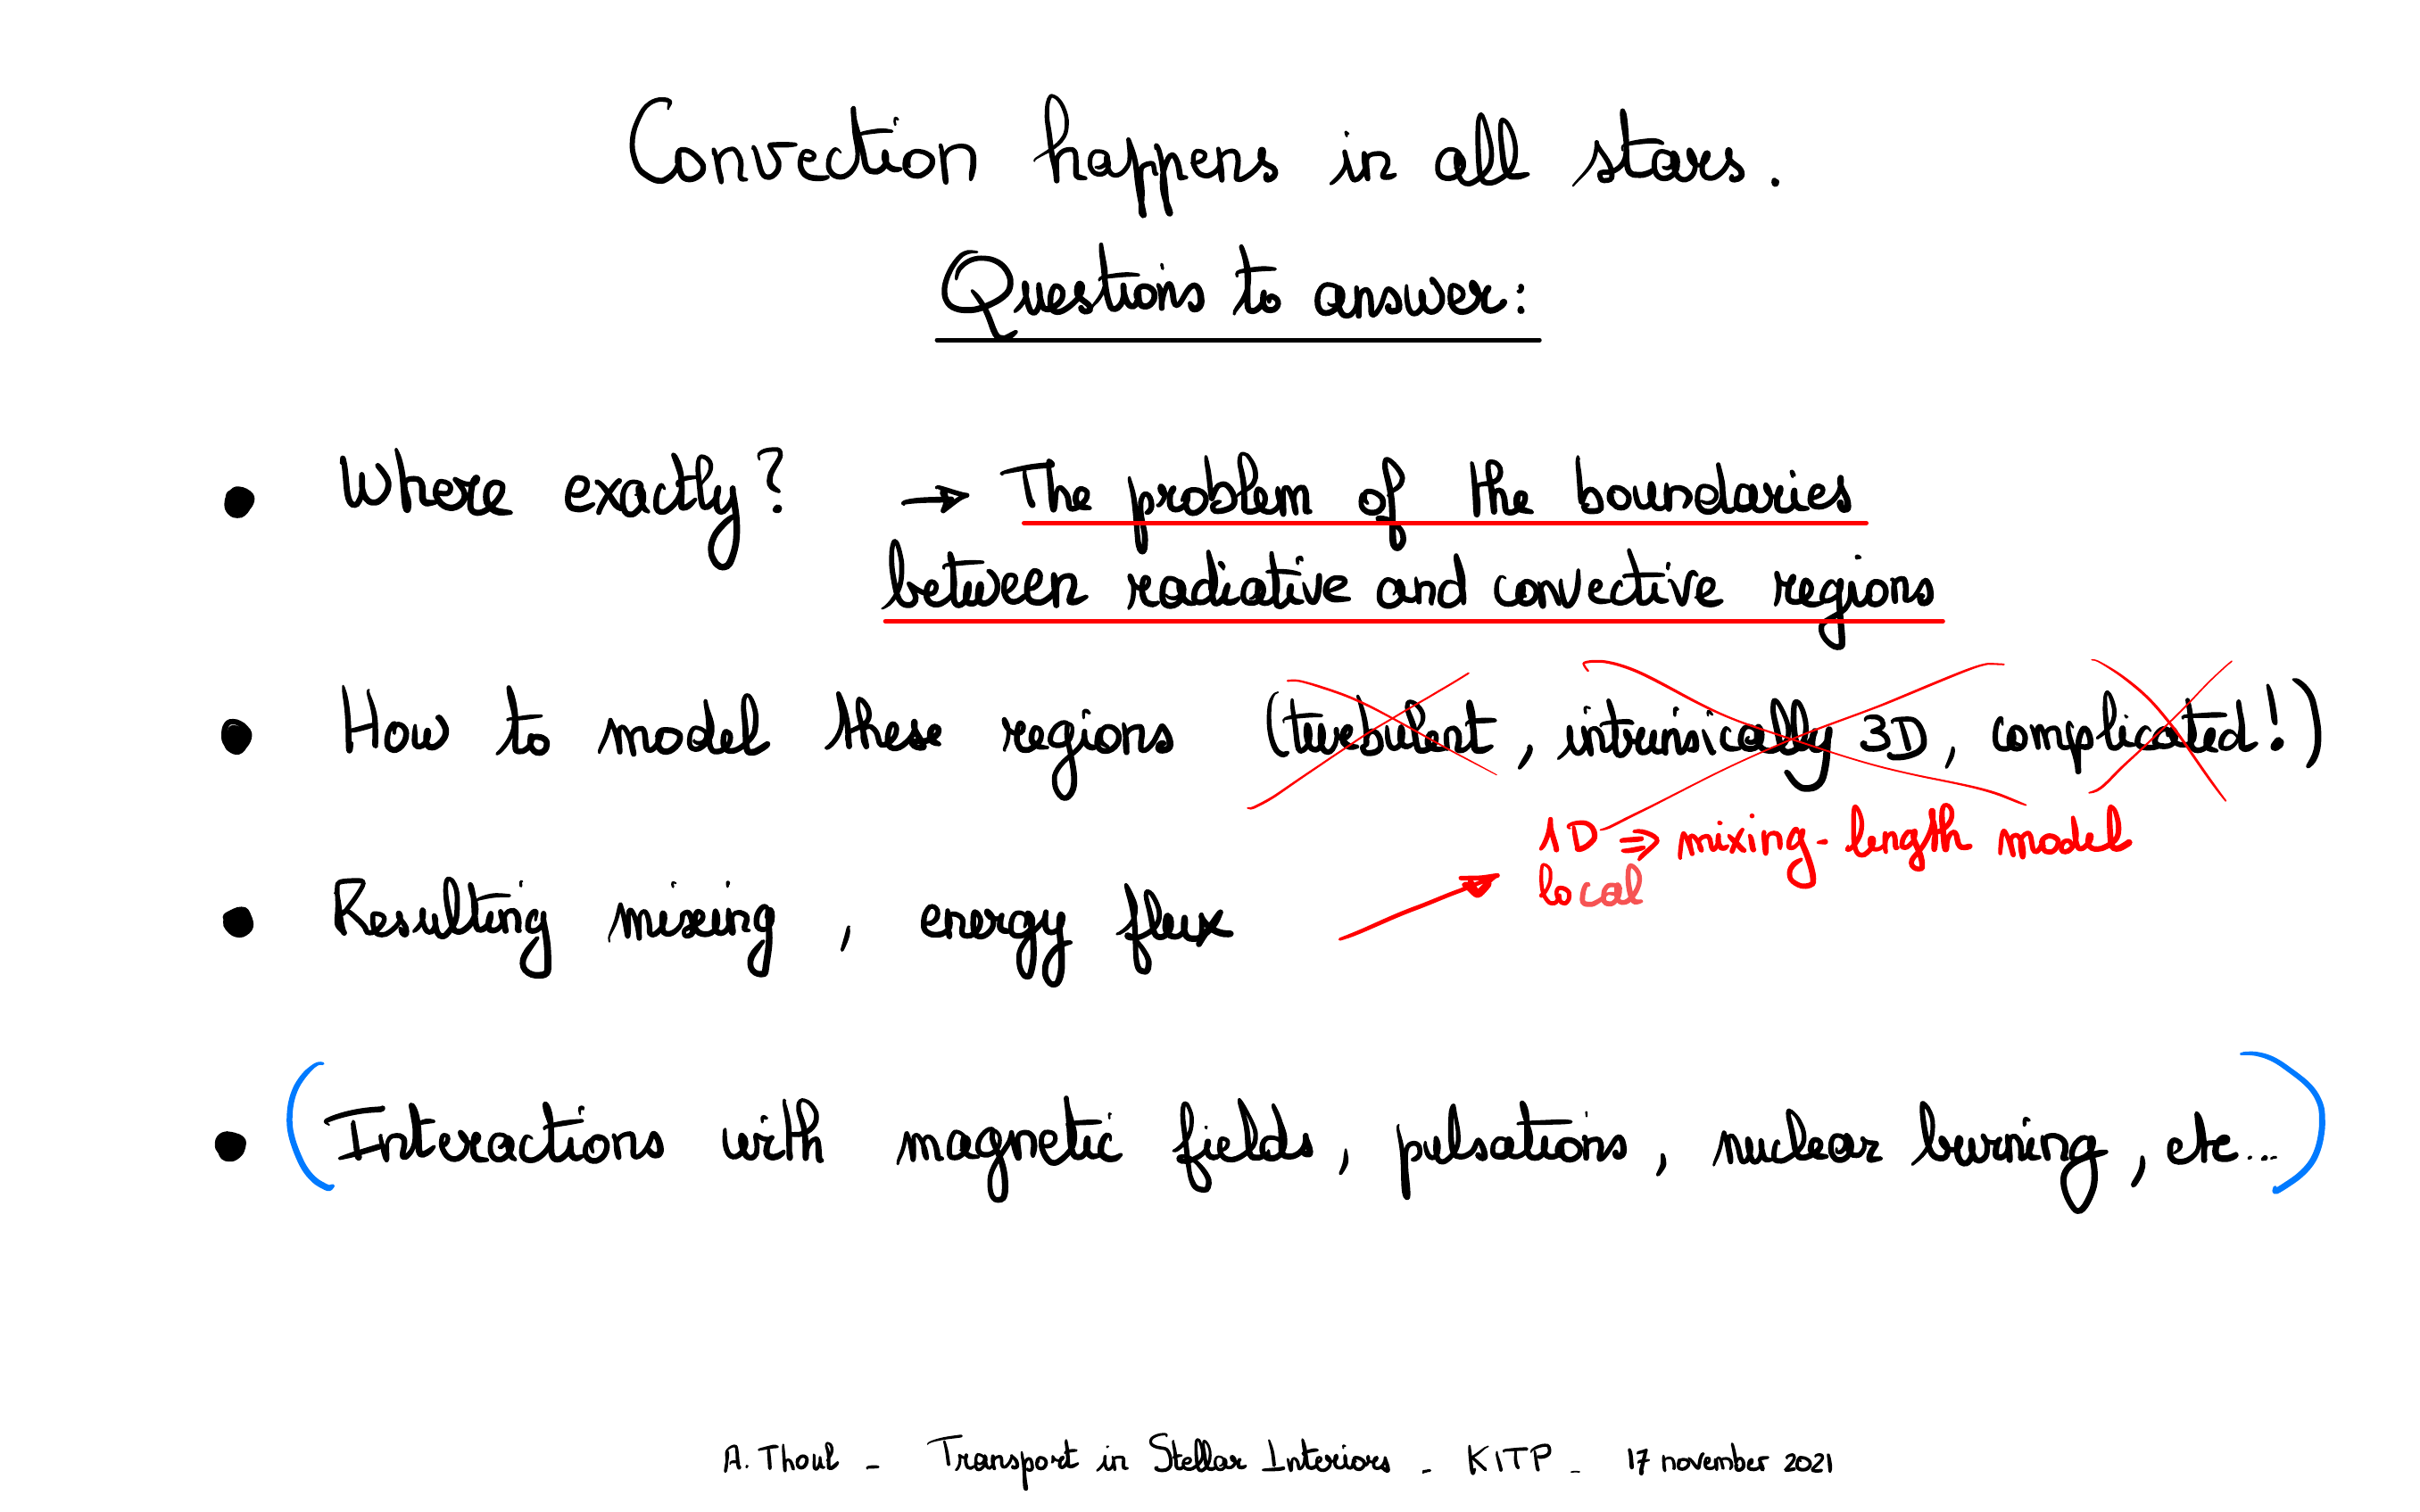 Convection happens in all stars.
Questions to answer:
• Where exactly? → The problem of the boundaries
between radiative and convective regions
• How to model these regions (turbulent, intrinsically 3D, complicated!)
1D ⇒ mixing-length model
local
• Resulting mixing, energy flux
• (Interactions with magnetic fields, pulsations, nuclear burning, etc...)
A. Thoul - Transport in Stellar Interiors - KITP - 17 november 2021